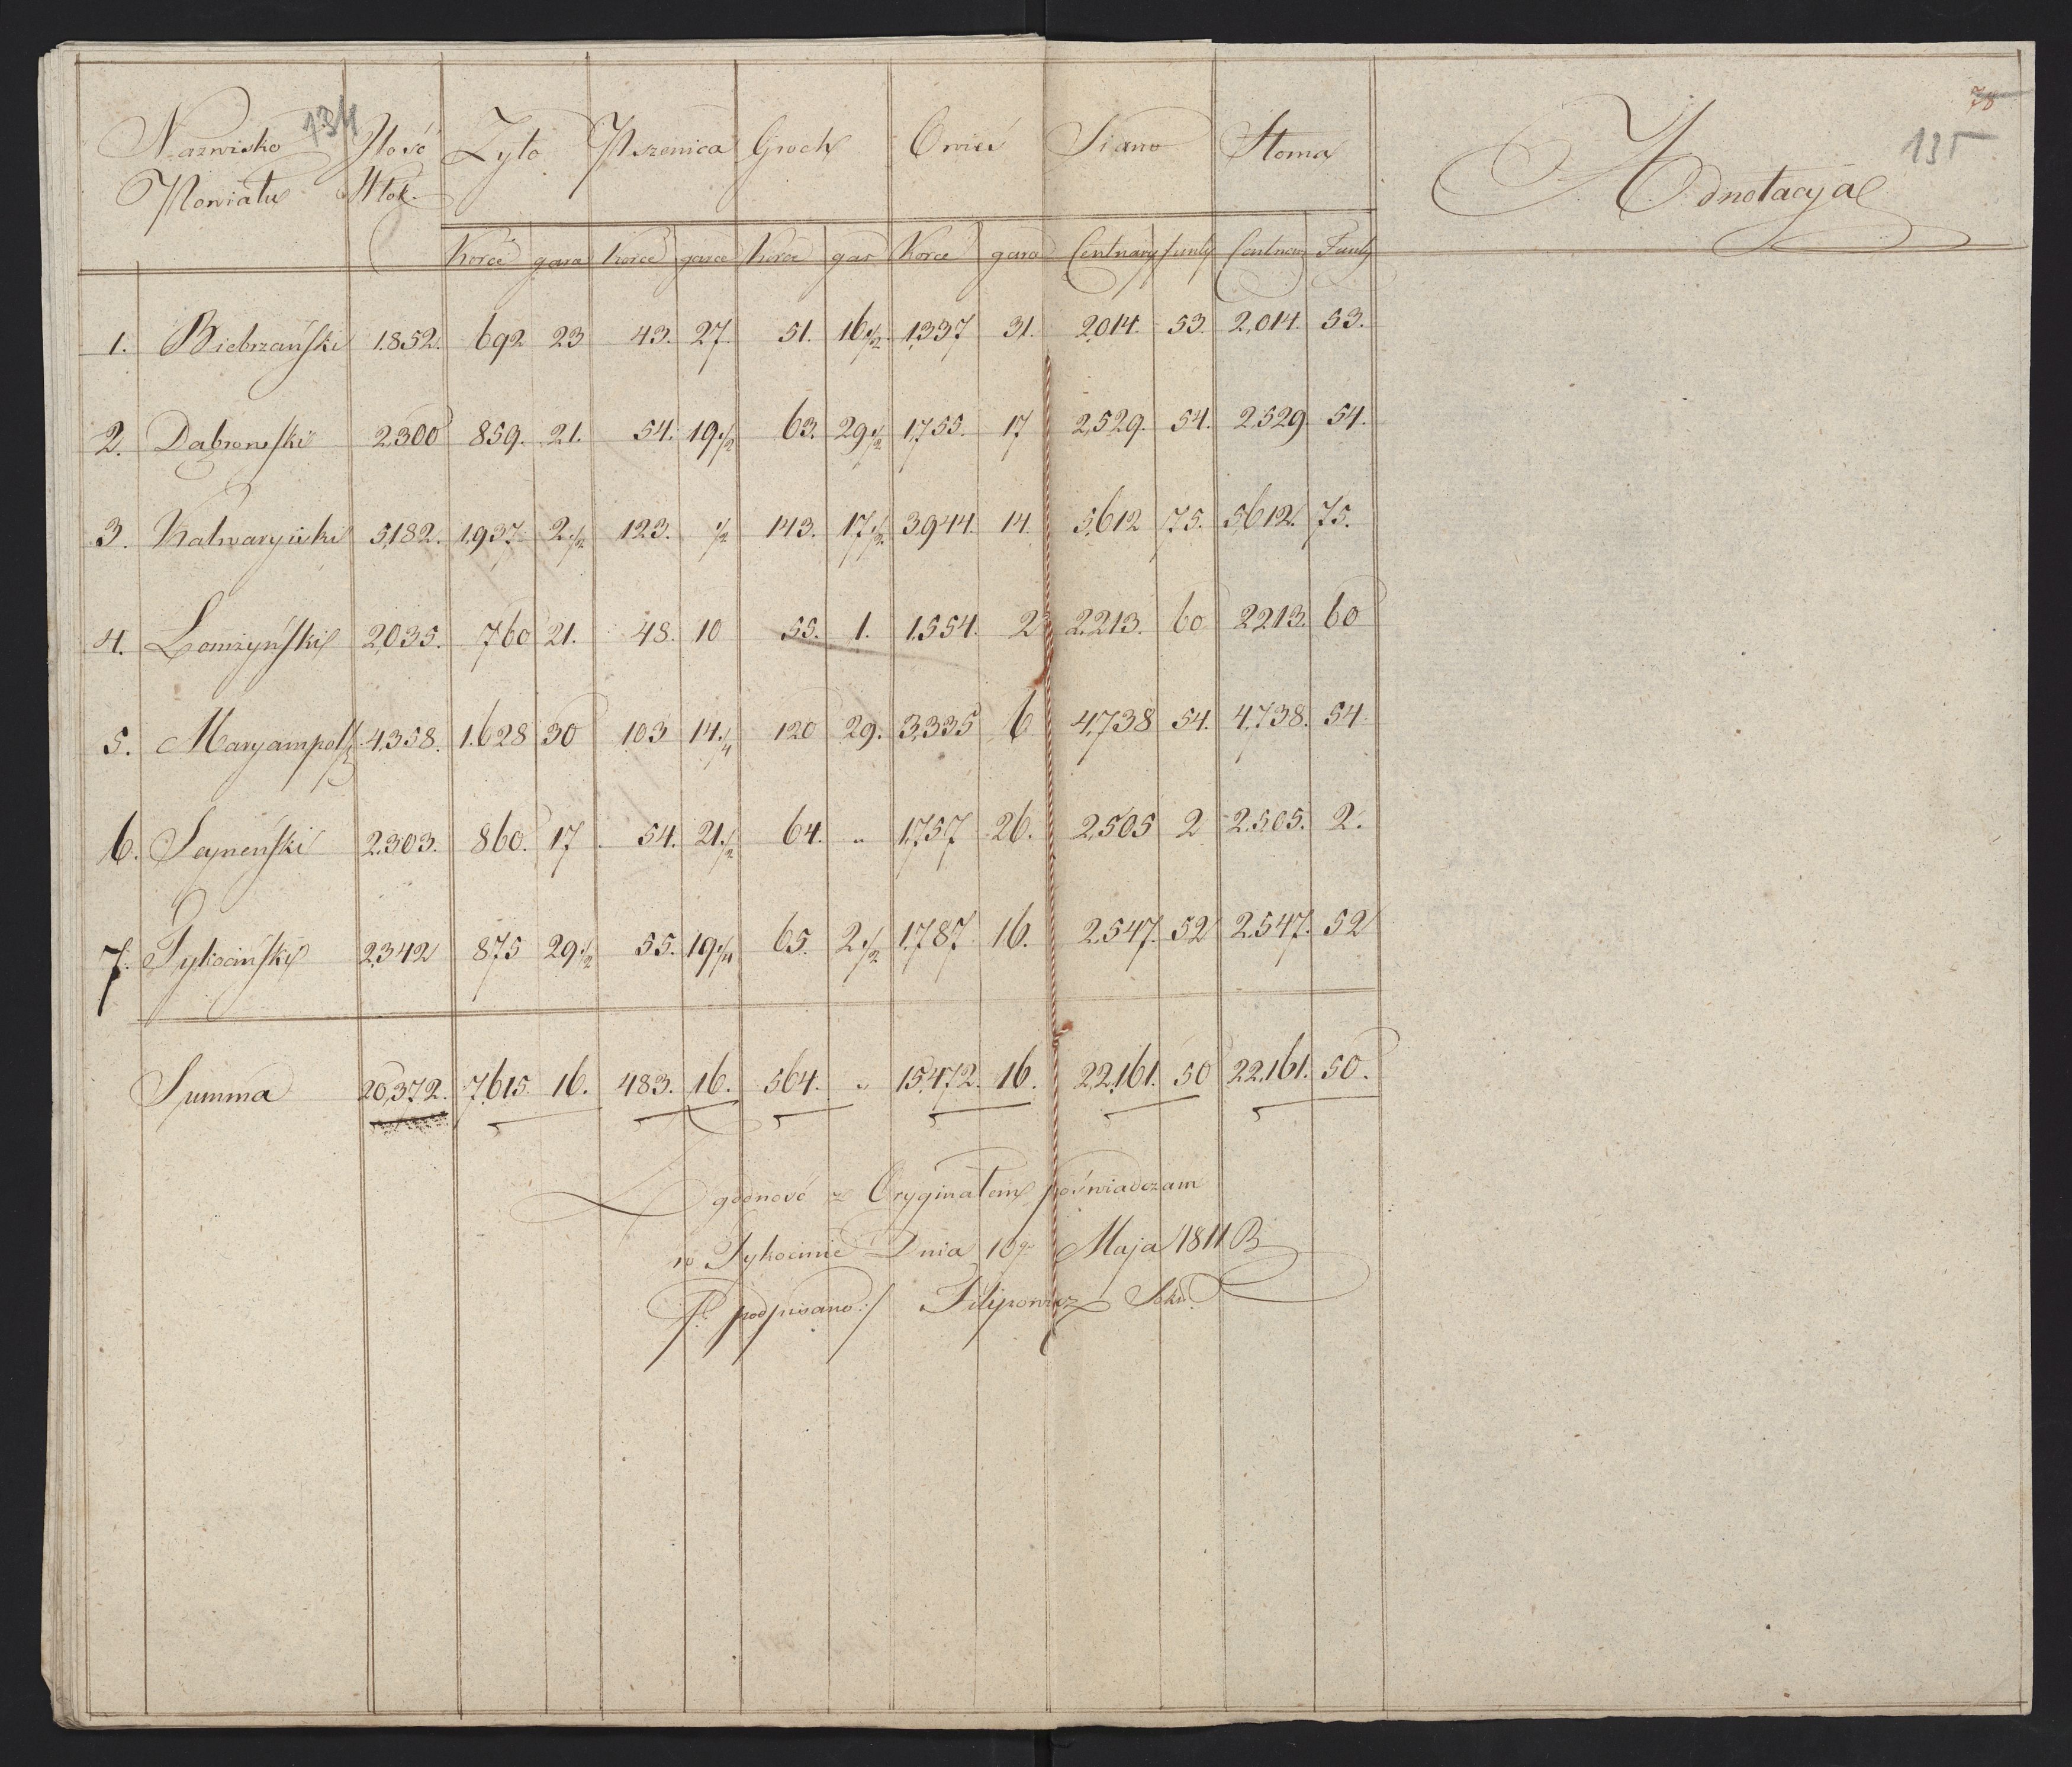 134
78
135
Nazwisko Powiatu | Ilość Włok. | Zyto | Pszenica | Groch | Owies | Siano | Słoma | Adnotacya
korce | garce | korce | garce | korce | gar | korce | garce | Centnary | funty | Centnary | Funty
1. Biebrzański 1852. 692 23 43. 27. 51. 16 1/2 1337 31. 2014. 53. 2,014. 53.
2. Dabrowski 2300 859. 21. 54. 19 1/2 63. 29 1/2 1,755. 17 2,529. 54. 2529. 54.
3. Kalwaryiski 5182. 1,937. 2 1/2 123. 1/2 143. 17 1/2 3944. 14. 5,612 75. 5,612. 75.
4. Łomżyński 2035. 760 21. 48. 10 55. 1. 1,554. 2 2,213. 60 2213. 60
5. Maryampols 4,358. 1.628 30 103 14 1/4 120 29. 3,335 6 4,738 54. 4,738. 54.
6. Seyneński 2.303. 860. 17 54. 21 1/2 64. „ 1,757 26. 2,505 2 2.505. 2.
7. Tykociński 2342 875 29 1/2 55. 19 1/4 65. 2 1/2 1,787 16. 2.547. 52 2.547. 52
Summa 20,372. 7,615. 16. 483. 16. 564. „ 15,472. 16. 22,161. 50 22,161. 50.
Zgodność z Oryginałem poświadczam
w Tykocinie Dnia 10go Maja 1811 R
/: podpisano :/ Filipowicz Sekr.